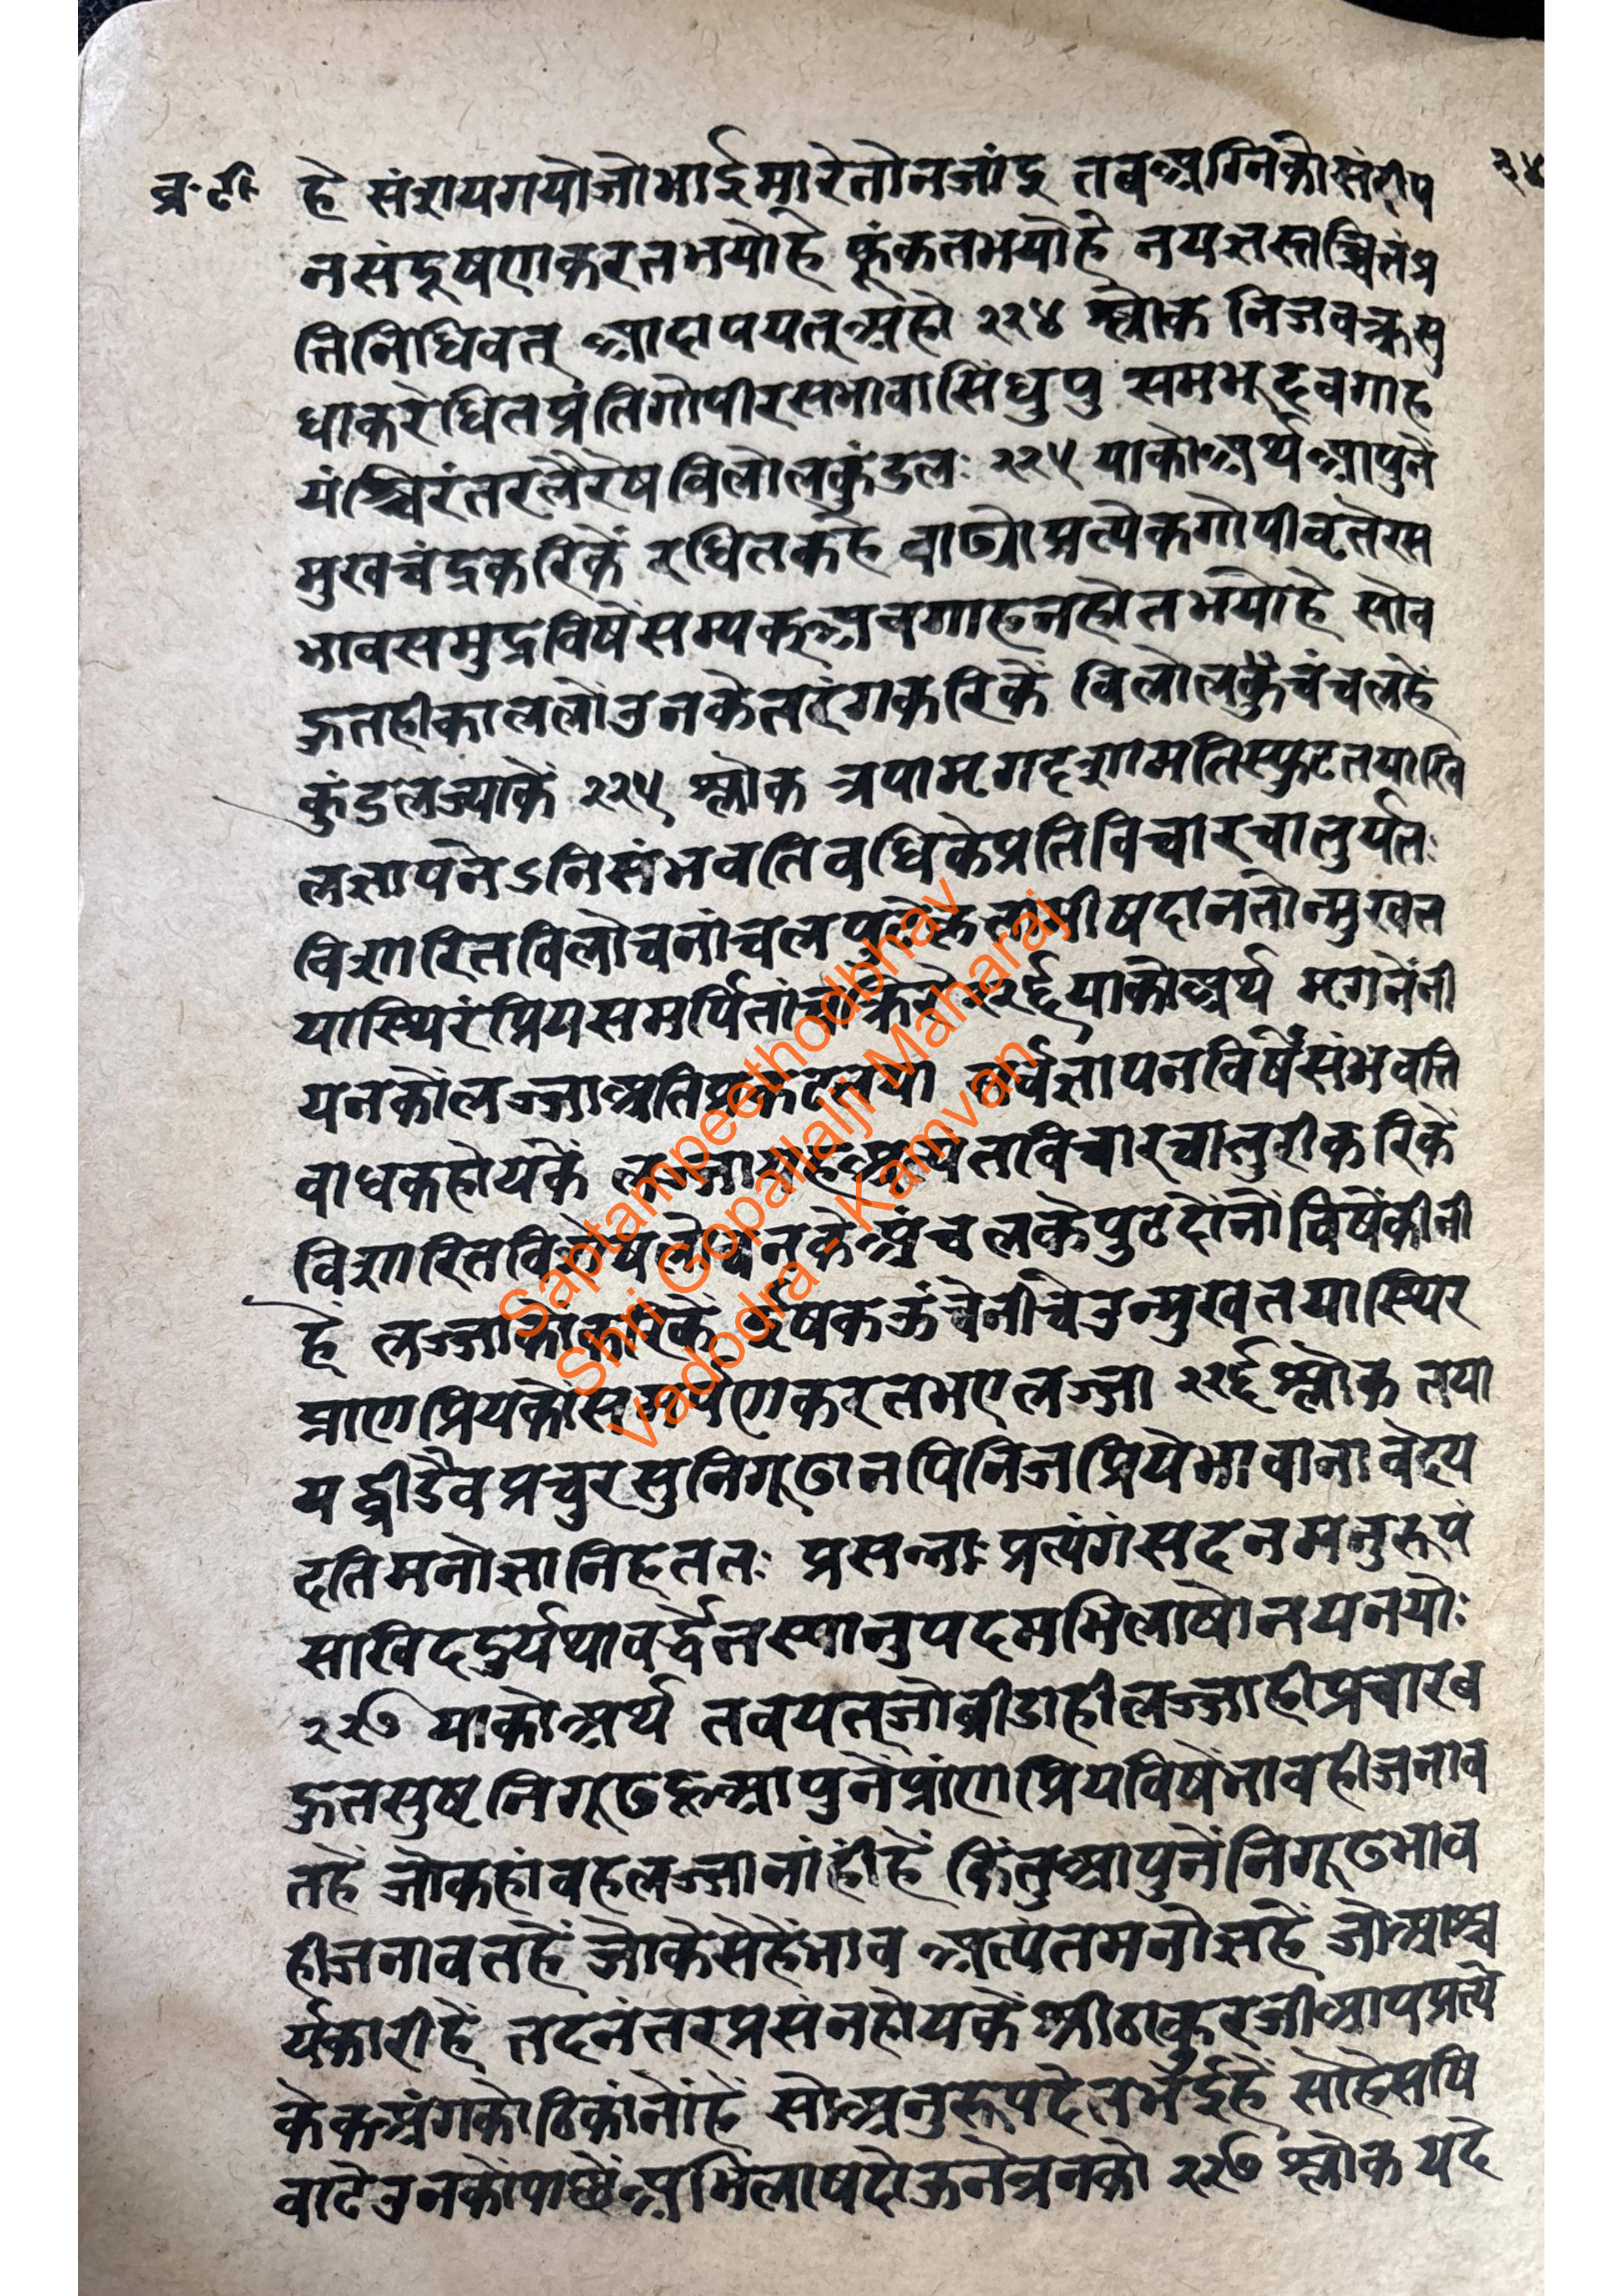 व्र·टी·
३४
हे संशयगयोजोभाईमारेतोनजांइ तवअग्निकोसंदीप
नसंदूषणकरतभयोहे फूंकतभयोहे नयज्ञस्तच्चितंप्र
तिनिधिवत् आदापयत्अहो २२४ श्लोक निजवक्त्रसु
धाकरेधितप्रंतिगोपीरसभावासिंधुपु समभूदवगाह
यंश्चिरंतरलैरेषविलोलकुंडलः २२५ याकोअर्थ आपुनें
मुखचंद्रकरिकें रधितकहें वाढ्योप्रत्येकगोपीवृतेरस
भावसमुद्रविषेंसम्यक्अवगाहनहोतभयोहे सोव
हुतहीकाललोंउनकेतरंगकरिकें विलोलकैचंचलहें
कुंडलज्याकें २२५ श्लोक त्रपामृगदृशामतिस्फुटतयाखि
लज्ञापनेऽनिसंभवतिवधिकेप्रतिविचारचातुर्यतः
विशारितविलोचनांचलपुटे तामीषदानतोन्मुखत
यास्थिरंप्रियसमर्पितां २२६ याकोअर्थ मृगनेंनी
यनकोलज्जाअतिप्रकटतया सर्वज्ञापनविषेंसंभवति
वाधकहोयकें लज्जा विचारचातुरीकरिकें
विशारित नकेअंचलकेपुटदोंनोंविषेंकीनी
हें लज्जाकों ईषकऊंचेनीचेउन्मुखतयास्थिर
प्राणप्रियकोंसमर्पणकरतभएलज्जा २२६ श्लोक तया
यद्व्रीडैवप्रचुरसुनिगूढानपिनिजप्रियेभावानावेदय
दतिमनोज्ञानिहततः प्रसन्नाःप्रत्यंगंसदनमनुरूपं
साखिददुर्यथावर्द्धेतस्यानुपदमभिलाषोनयनयोः
२२७ याकोअर्थ तवयत्जोव्रीडाहीलज्जाहीप्रचारब
हुतसुष्टनिगूढहूआपुनेंप्रांणप्रियविषेंभावहीजनाव
तहें जोकहांवहलज्जानांहींहें किंतुआपुनेंनिगूढभाव
हीजनावतहें जोकेसेहेंभाव अत्यंतमनोज्ञहें जोआश्च
र्यकारीहें तदनंतरप्रसंनहोयकें श्रीठाकुरजीआपप्रत्ये
केकअंगकोठिकांनोंहें सोअनुरूपदेतभईहें सोहेसषि
वाटेउनकोपाछेंअभिलाषदोऊनेत्रनको २२७ श्लोक यदे
Saptampeethodbhav
Shri Gopallalji Maharaj
Vadodra - Kamvan